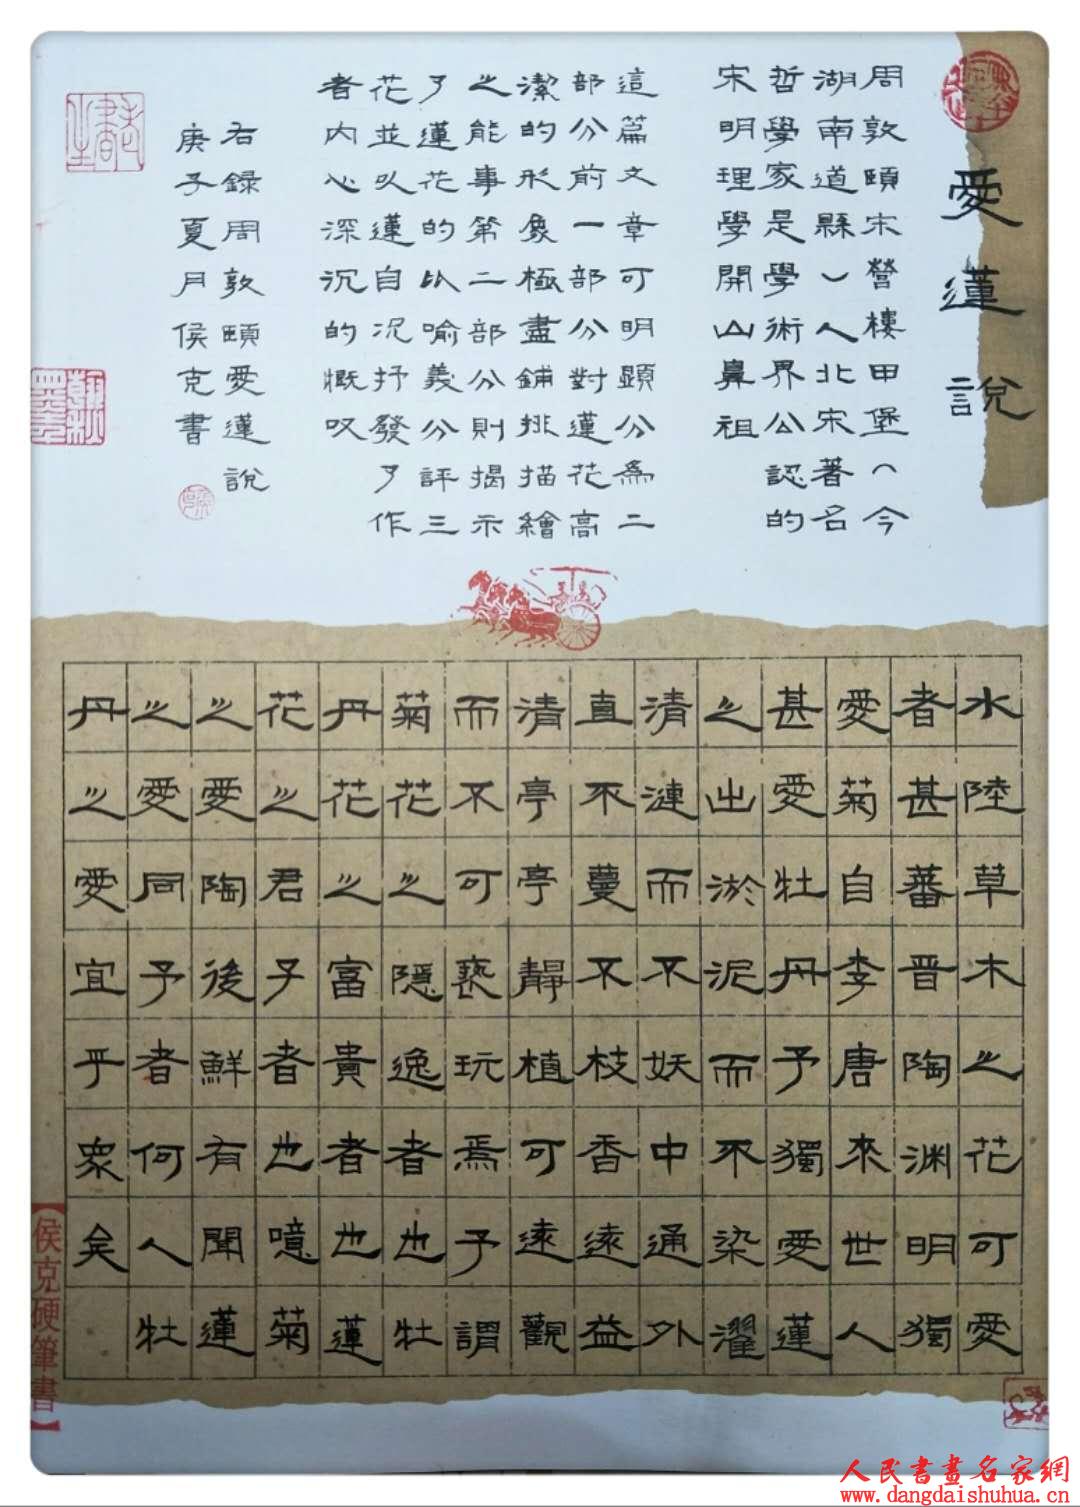 愛蓮說
周敦頤宋營樓甲堡（今
湖南道縣）人北宋著名
哲學家是學術界公認的
宋明理學開山鼻祖
這篇文章可明顯分為二
部分前一部分對蓮花高
潔的形象極盡鋪排描繪
之能事第二部分則揭示
了蓮花的比喻義分評三
花並以蓮自况抒發了作
者内心深沉的慨叹
右録周敦頤愛蓮說
庚子夏月侯克書
水陸草木之花可愛
者甚蕃晋陶渊明獨
愛菊自李唐來世人
甚愛牡丹予獨愛蓮
之出淤泥而不染濯
清漣而不妖中通外
直不蔓不枝香遠益
清亭亭靜植可遠觀
而不可褻玩焉予謂
菊花之隱逸者也牡
丹花之富貴者也蓮
花之君子者也噫菊
之愛陶後鮮有聞蓮
之愛同予者何人牡
丹之愛宜乎眾矣
【侯克硬筆書】
人民書畫名家網
www.dangdaishuhua.cn